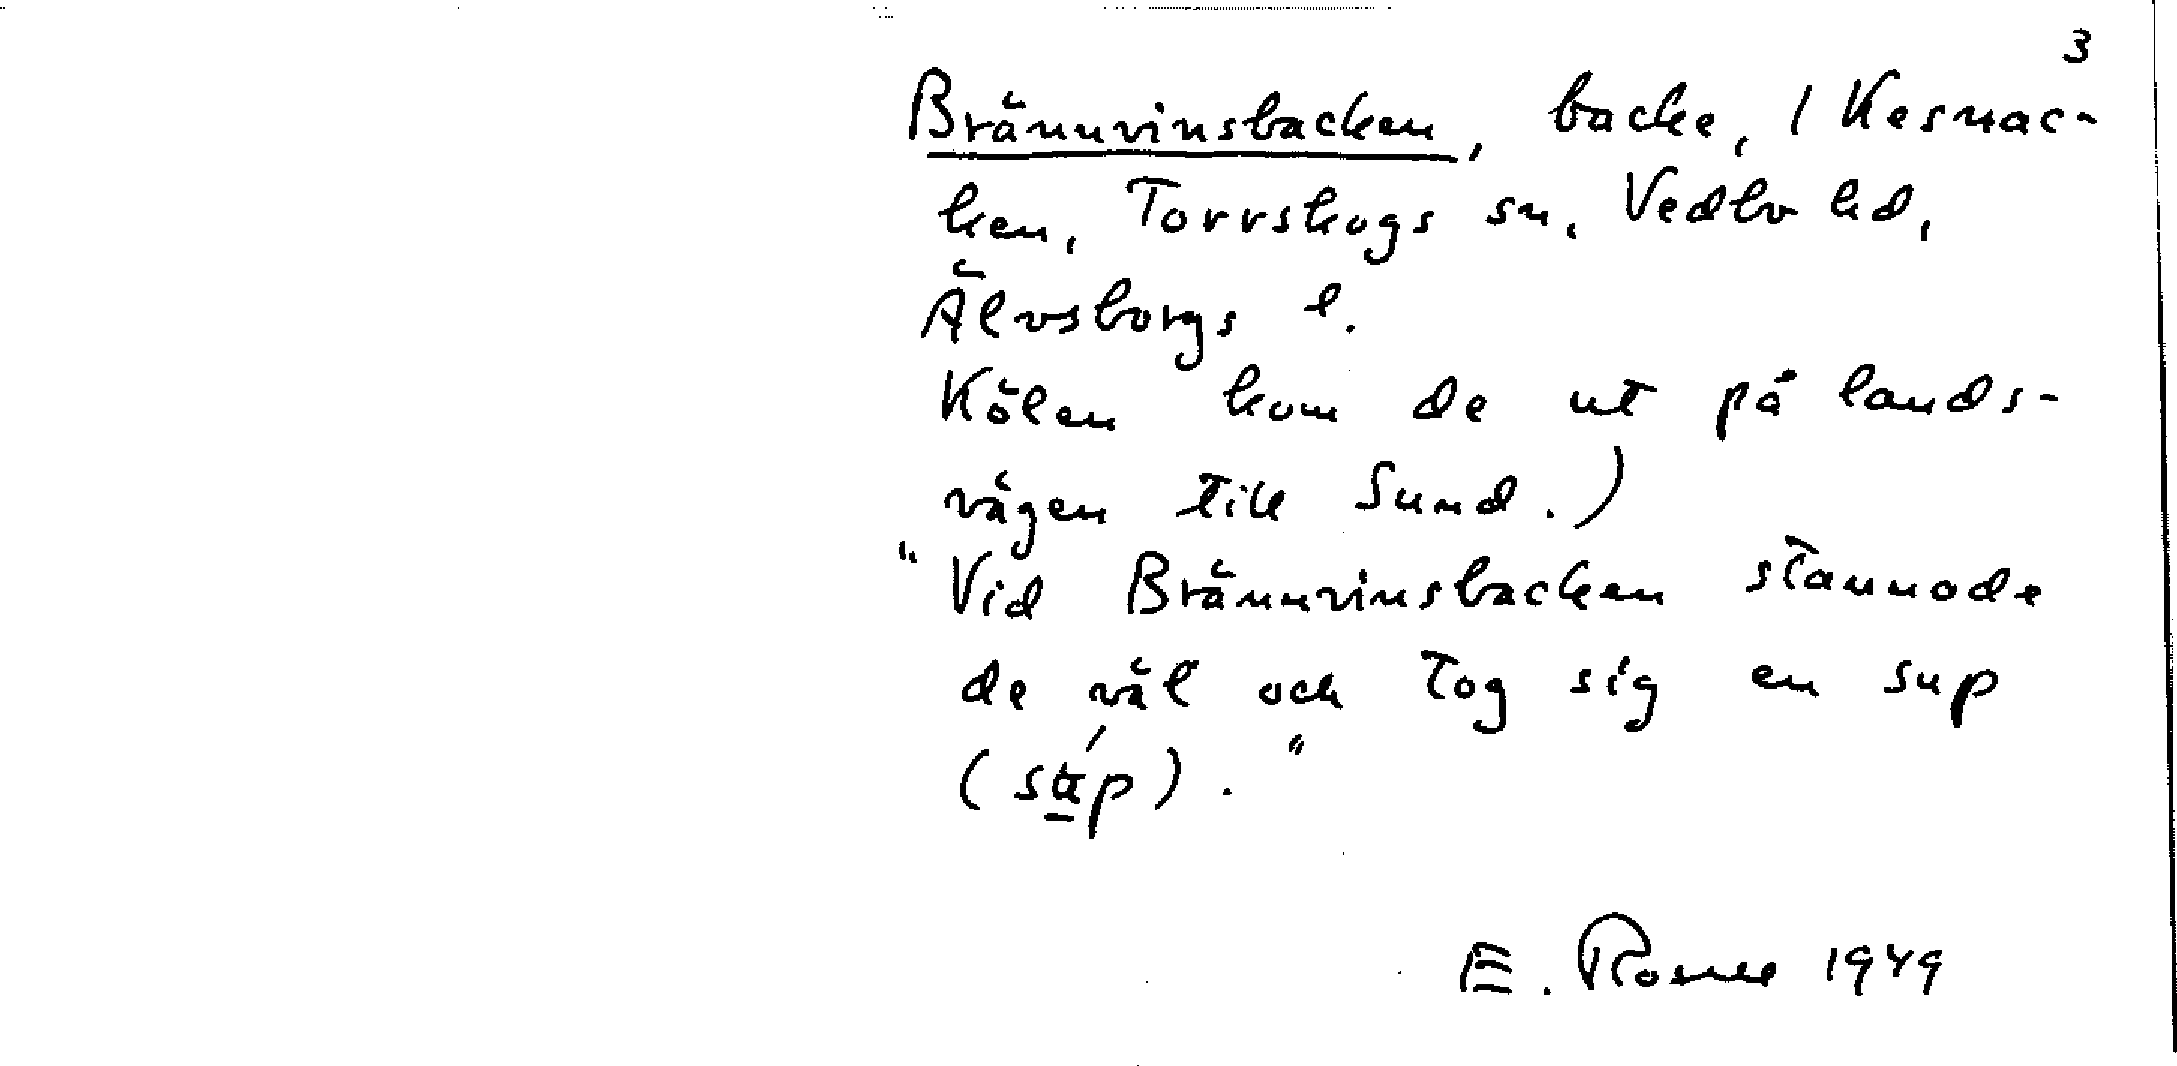 3
Brännvinsbacken, backe, / Kesnac-
ken, Torrskogs sn, Vedbo hd,
Älvsborgs l.
Kölen kom de ut på lands-
vägen till Sund.)
"Vid Brännvinsbacken stannade
de väl och tog sig en sup
(sup)."
E. 1949